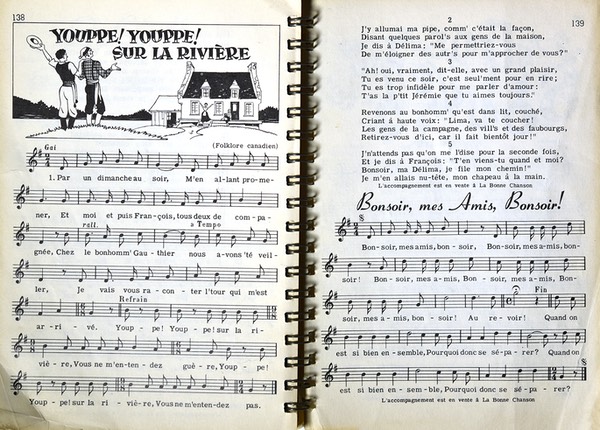 138
YOUPPE! YOUPPE!
SUR LA RIVIÈRE
Gai
(Folklore canadien)
1. Par un dimanche au soir, M'en al-lant pro-me-
ner, Et moi et puis Fran-çois, tous deux de com-pa-
rall.
a Tempo
gnée, Chez le bonhomm' Gau-thier nous a-vons 'té veil-
ler, Je vais vous ra-con-ter l'tour qui m'est
Refrain
ar-ri-vé. Youp-pe! Youp-pe! sur la ri-
viè-re, Vous ne m'en-ten-dez guè-re, Youp-pe!
Youp-pe! sur la ri-viè-re, Vous ne m'entendez pas.
139
2
J'y allumai ma pipe, comm' c'était la façon,
Disant quelques parol's aux gens de la maison,
Je dis à Délima: "Me permettriez-vous
De m'éloigner des autr's pour m'approcher de vous?"
3
"Ah! oui, vraiment, dit-elle, avec un grand plaisir,
Tu es venu ce soir, c'est seul'ment pour en rire;
Tu es trop infidèle pour me parler d'amour:
T'as la p'tit Jérémie que tu aimes toujours."
4
Revenons au bonhomm' qu'est dans lit, couché,
Criant à haute voix: "Lima, va te coucher!
Les gens de la campagne, des vill's et des faubourgs,
Retirez-vous d'ici, car il fait bientôt jour!"
5
J'n'attends pas qu'on me l'dise pour la seconde fois,
Et je dis à François: "T'en viens-tu quand et moi?
Bonsoir, ma Délima, je file mon chemin!"
Je m'en allais nu-tête, mon chapeau à la main.
L'accompagnement est en vente à La Bonne Chanson
Bonsoir, mes Amis, Bonsoir!
Bon-soir, mes amis, bon-soir, Bon-soir, mes a-mis, bon-
soir! Bon-soir, mes a-mis, Bon-soir, mes amis, Bon-
Fin
soir, mes a-mis, bon-soir! Au re-voir! Quand on
est si bien en-semble, Pourquoi donc se sé-pa-rer? Quand on
est si bien en-sem-ble, Pourquoi donc se sé-pa-rer?
L'accompagnement est en vente à La Bonne Chanson